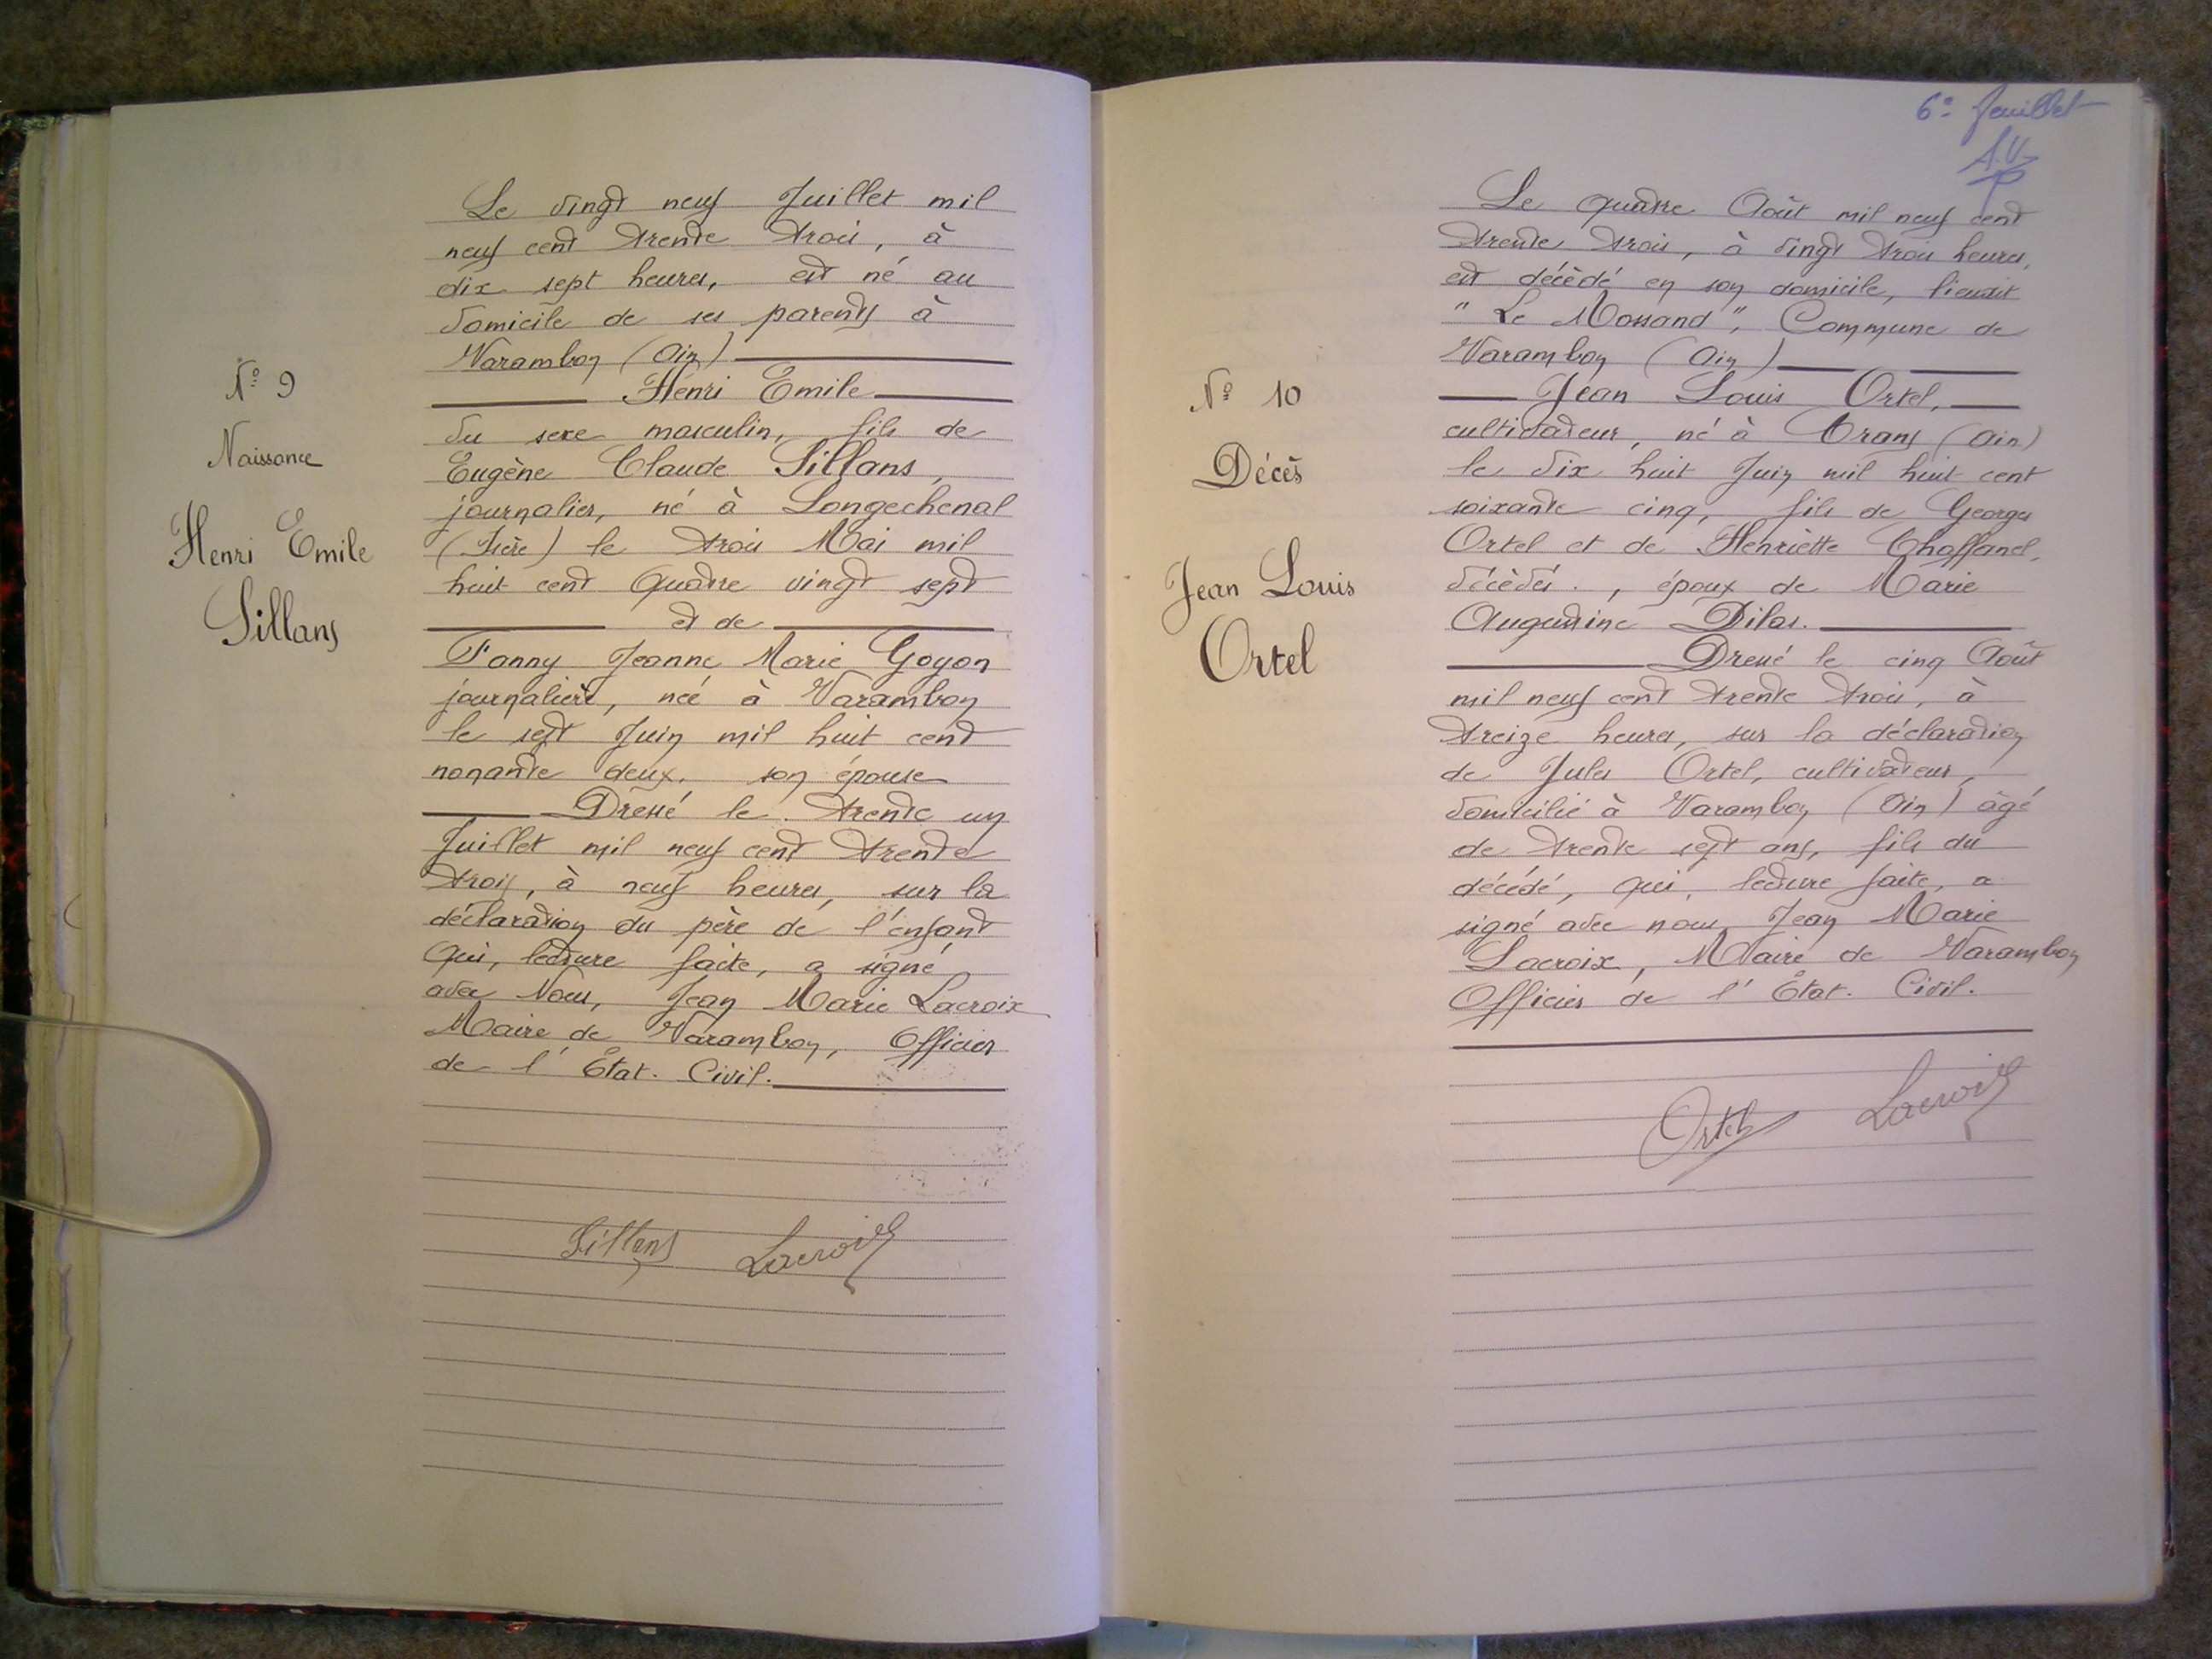 N° 9
Naissance
Henri Emile
Sillans
Le vingt neuf Juillet mil
neuf cent trente trois, à
dix sept heures, est né au
domicile de ses parents à
Varambon (Ain)
Henri Emile
du sexe masculin, fils de
Eugène Claude Sillans,
journalier, né à Longechenal
(Isère) le trois Mai mil
huit cent quatre vingt sept
et de
Fanny Jeanne Marie Goyon
journalière, née à Varambon
le sept Juin mil huit cent
nonante deux, son épouse
Dressé le trente un
Juillet mil neuf cent trente
trois, à neuf heures, sur la
déclaration du père de l'enfant
qui, lecture faite, a signé
avec Nous, Jean Marie Lacroix
Maire de Varambon, Officier
de l'État. Civil.
Sillans Lacroix
6e feuillet
Le quatre Août mil neuf cent
trente trois, à vingt trois heures,
est décédé en son domicile, lieudit
" Le Mossand ", Commune de
Varambon (Ain)
N° 10
Décès
Jean Louis
Ortel
Jean Louis Ortel,
cultivateur, né à Crans (Ain)
le dix huit Juin mil huit cent
soixante cinq, fils de Georges
Ortel et de Henriette Choffanel,
décédés., époux de Marie
Augustine Dilas.
Dressé le cinq Août
mil neuf cent trente trois, à
treize heures, sur la déclaration
de Jules Ortel, cultivateur,
domicilié à Varambon (Ain) âgé
de trente sept ans, fils du
décédé, qui, lecture faite, a
signé avec nous Jean Marie
Lacroix, Maire de Varambon
Officier de l'État. Civil.
Ortel Lacroix